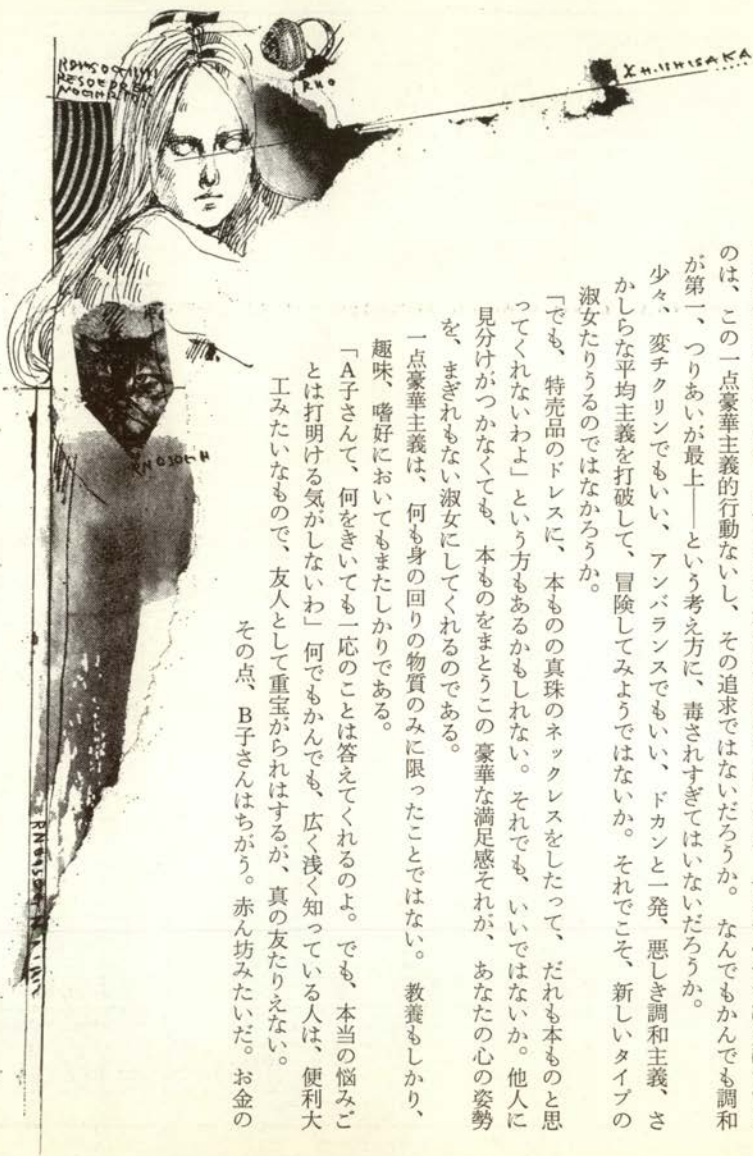 のは、この一点豪華主義的行動ないし、その追求ではないだろうか。なんでもかんでも調和
が第一、つりあいが最上――という考え方に、毒されすぎてはいないだろうか。
少々、変チクリンでもいい、アンバランスでもいい、ドカンと一発、悪しき調和主義、さ
かしらな平均主義を打破して、冒険してみようではないか。それでこそ、新しいタイプの
淑女たりうるのではなかろうか。
「でも、特売品のドレスに、本ものの真珠のネックレスをしたって、だれも本ものと思
ってくれないわよ」という方もあるかもしれない。それでも、いいではないか。他人に
見分けがつかなくても、本ものをまとうこの豪華な満足感それが、あなたの心の姿勢
を、まぎれもない淑女にしてくれるのである。
一点豪華主義は、何も身の回りの物質のみに限ったことではない。教養もしかり、
趣味、嗜好においてもまたしかりである。
「A子さんて、何をきいても一応のことは答えてくれるのよ。でも、本当の悩みご
とは打明ける気がしないわ」何でもかんでも、広く浅く知っている人は、便利大
工みたいなもので、友人として重宝がられはするが、真の友たりえない。
その点、B子さんはちがう。赤ん坊みたいだ。お金の
RHO